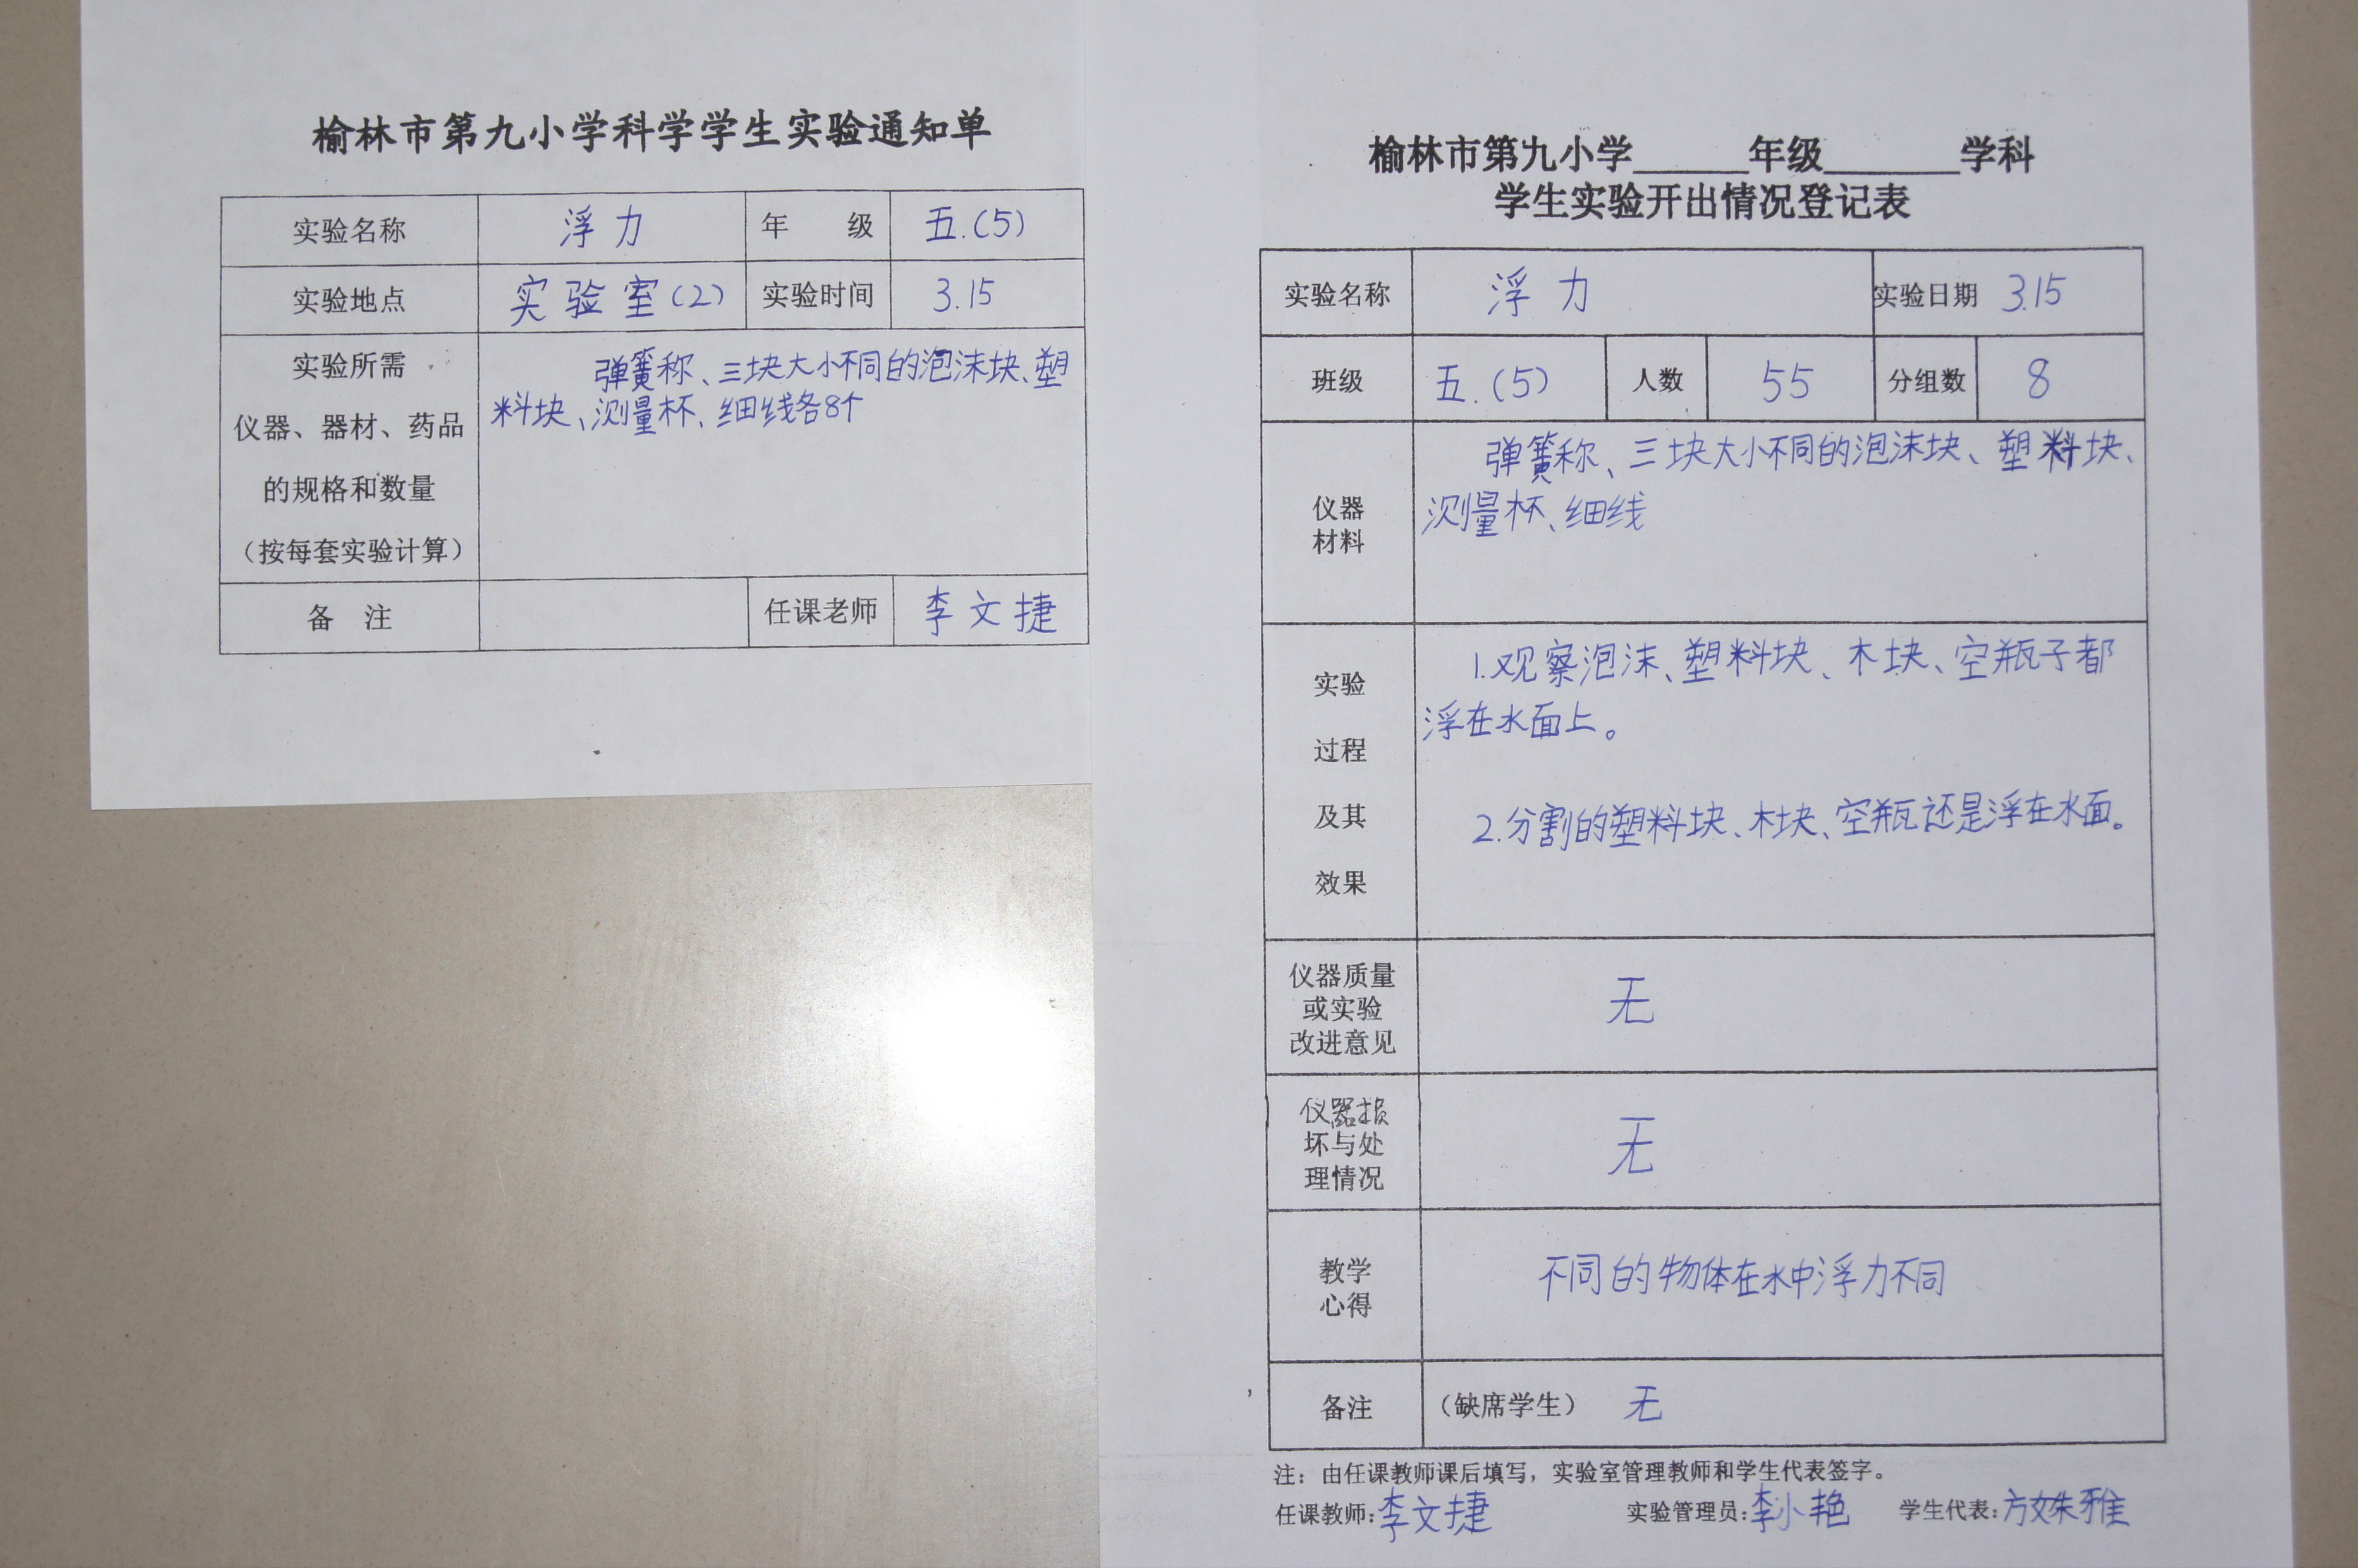 榆林市第九小学科学学生实验通知单
实验名称 浮力 年 级 五.(5)
实验地点 实验室(2) 实验时间 3.15
实验所需
仪器、器材、药品
的规格和数量
（按每套实验计算）
弹簧称、三块大小不同的泡沫块、塑
料块、测量杯、细线各8个
备 注 任课老师 李文捷
榆林市第九小学______年级_______学科
学生实验开出情况登记表
实验名称 浮力 实验日期 3.15
班级 五.(5) 人数 55 分组数 8
仪器
材料
弹簧称、三块大小不同的泡沫块、塑料块、
测量杯、细线
实验
过程
及其
效果
1.观察泡沫、塑料块、木块、空瓶子都
浮在水面上。
2.分割的塑料块、木块、空瓶还是浮在水面。
仪器质量
或实验
改进意见
无
仪器损
坏与处
理情况
无
教学
心得
不同的物体在水中浮力不同
备注 （缺席学生） 无
注：由任课教师课后填写，实验室管理教师和学生代表签字。
任课教师:李文捷 实验管理员:李小艳 学生代表:方姝雅